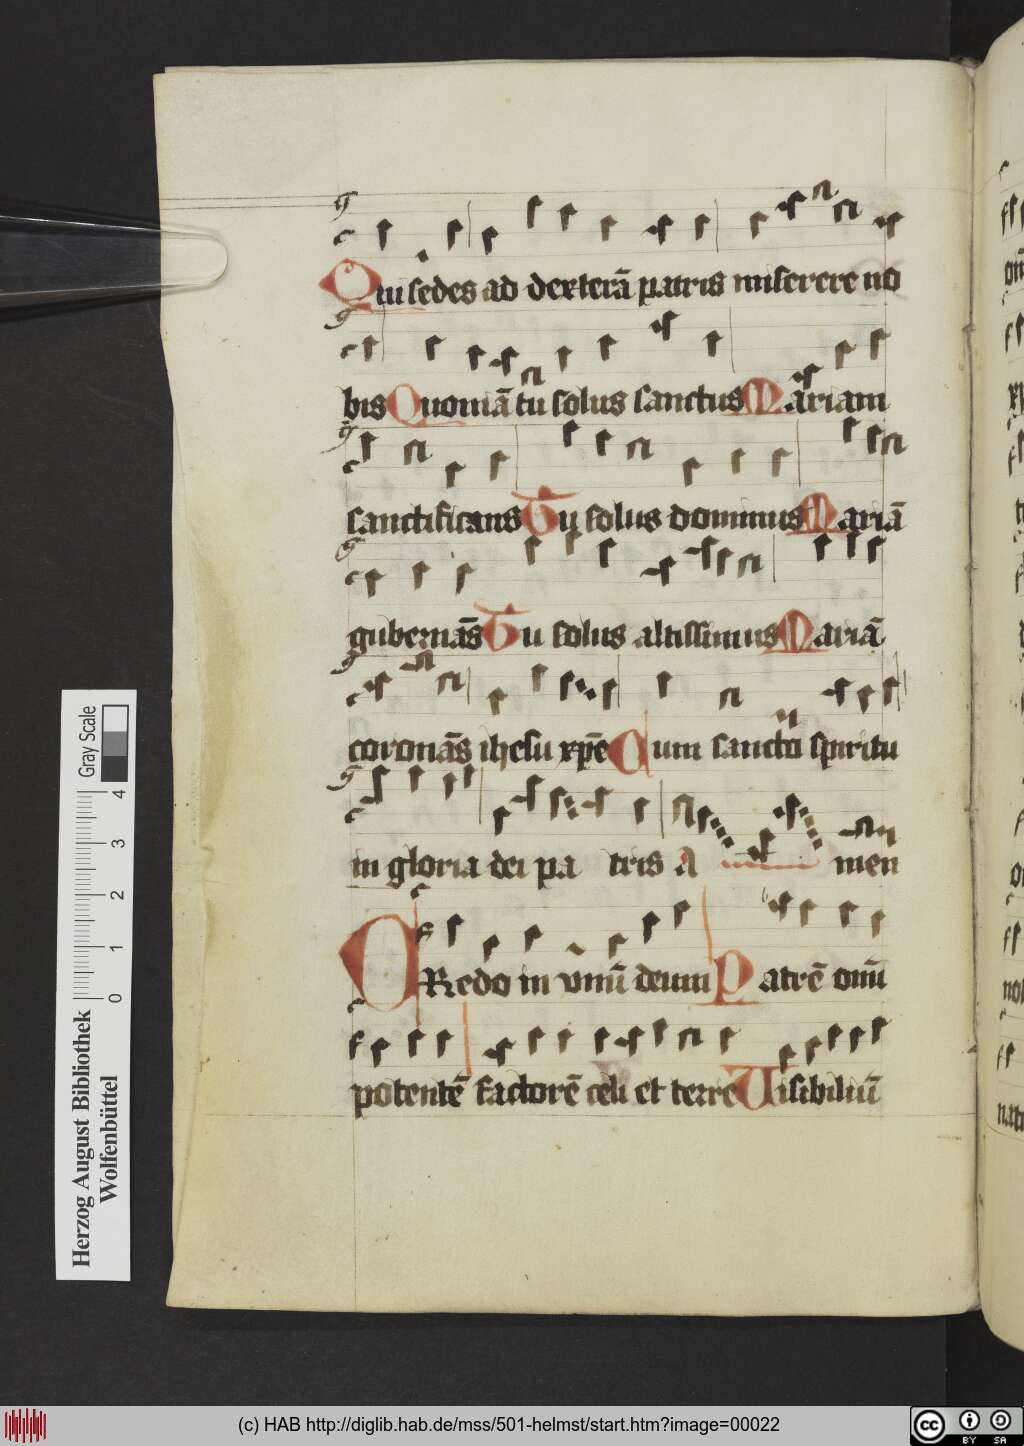 Qui sedes ad dexterā patris miserere no
bis Quoniā tu solus sanctus Mariam
sanctificans Tu solus dominus Mariā
gubernās Tu solus altissimus Mariā
coronās ihesu xpē Cum sancto spiritu
in gloria dei pa tris A men
CRedo in vnū deum Patrē omī
potentē factorē celi et terre Uisibiliū
Gray Scale
0 1 2 3 4
Herzog August Bibliothek
Wolfenbüttel
(c) HAB http://diglib.hab.de/mss/501-helmst/start.htm?image=00022
cc BY SA